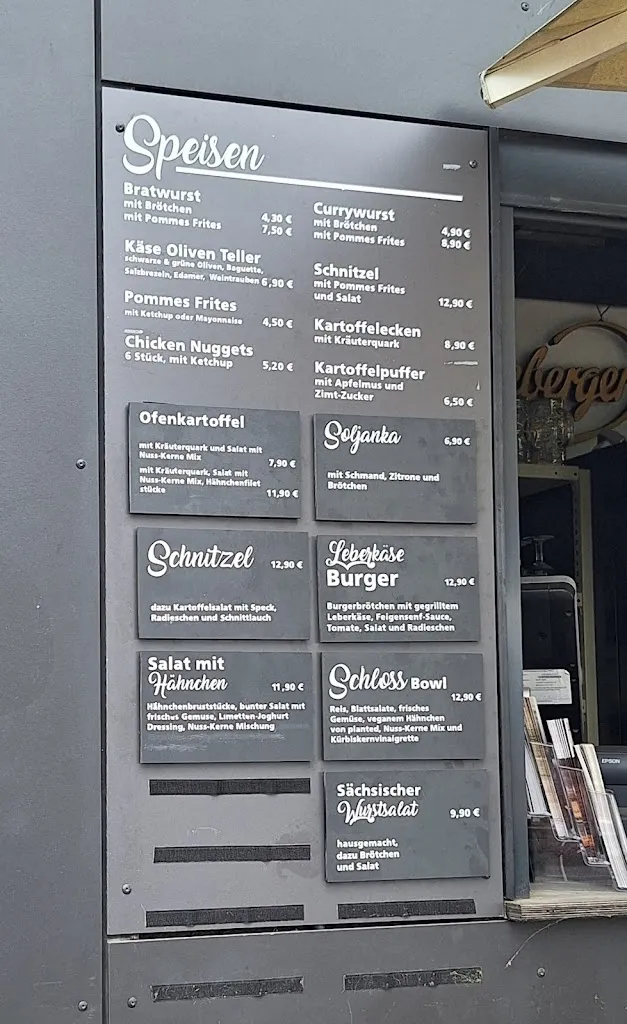 Speisen
Bratwurst
mit Brötchen 4,30 €
mit Pommes Frites 7,50 €
Käse Oliven Teller
schwarze & grüne Oliven, Baguette,
Salzbrezeln, Edamer, Weintrauben 6,90 €
Pommes Frites
mit Ketchup oder Mayonnaise 4,50 €
Chicken Nuggets
6 Stück, mit Ketchup 5,20 €
Currywurst
mit Brötchen 4,90 €
mit Pommes Frites 8,90 €
Schnitzel
mit Pommes Frites
und Salat 12,90 €
Kartoffelecken
mit Kräuterquark 8,90 €
Kartoffelpuffer
mit Apfelmus und
Zimt-Zucker 6,50 €
Ofenkartoffel
mit Kräuterquark und Salat mit
Nuss-Kerne Mix 7,90 €
mit Kräuterquark, Salat mit
Nuss-Kerne Mix, Hähnchenfilet
stücke 11,90 €
Soljanka 6,90 €
mit Schmand, Zitrone und
Brötchen
Schnitzel 12,90 €
dazu Kartoffelsalat mit Speck,
Radieschen und Schnittlauch
Leberkäse
Burger 12,90 €
Burgerbrötchen mit gegrilltem
Leberkäse, Feigensenf-Sauce,
Tomate, Salat und Radieschen
Salat mit
Hähnchen 11,90 €
Hähnchenbruststücke, bunter Salat mit
frisches Gemüse, Limetten-Joghurt
Dressing, Nuss-Kerne Mischung
Schloss Bowl
12,90 €
Reis, Blattsalate, frisches
Gemüse, veganem Hähnchen
von planted, Nuss-Kerne Mix und
Kürbiskernvinaigrette
Sächsischer
Wurstsalat 9,90 €
hausgemacht,
dazu Brötchen
und Salat
berger
EPSON